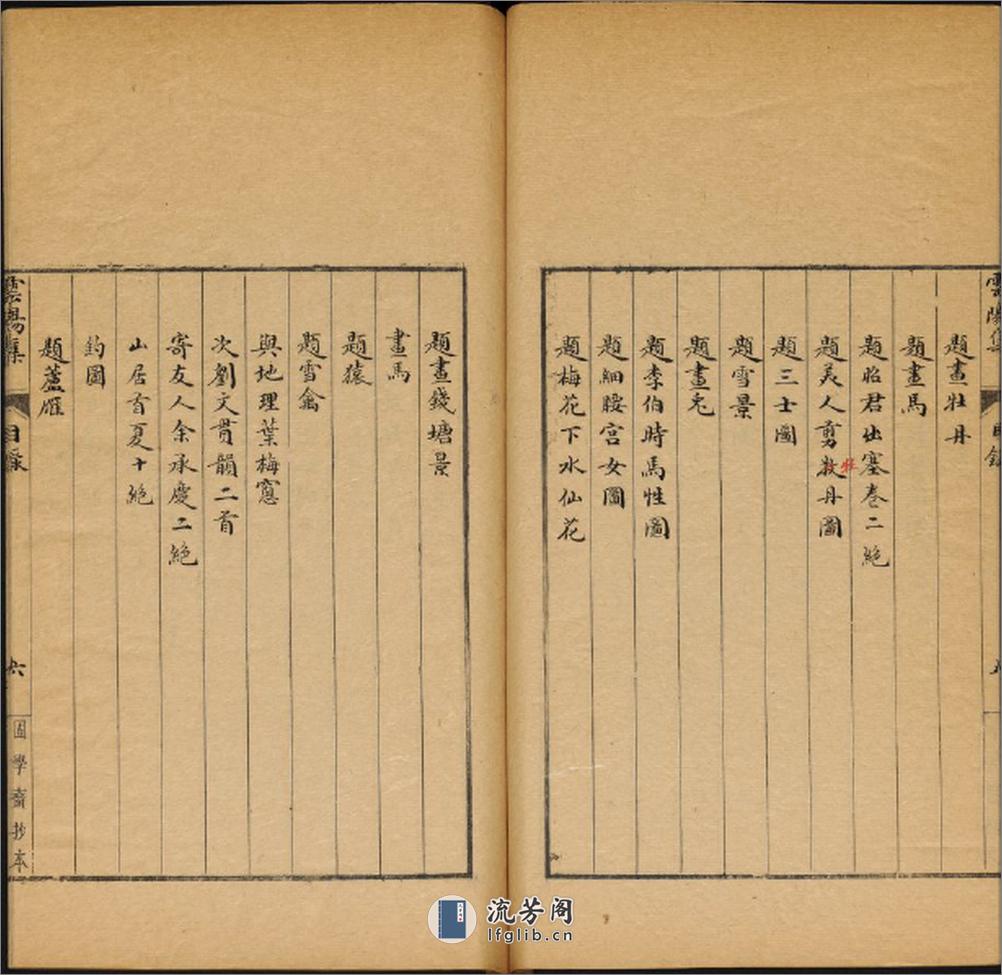 雲陽集
目錄
題畫牡丹
題畫馬
題昭君出塞卷二絕
題美人剪牧丹圖
牡
題三士圖
題雪景
題畫兎
題李伯時馬性圖
題細腰宫女圖
題梅花下水仙花
題畫錢塘景
畫馬
題猿
題雪禽
與地理葉梅窻
次劉文貫韻二首
寄友人余承慶二絕
山居首夏十絕
釣圖
題蘆雁
雲陽集
目錄
六
固學齋抄本
流芳阁
lfglib.cn